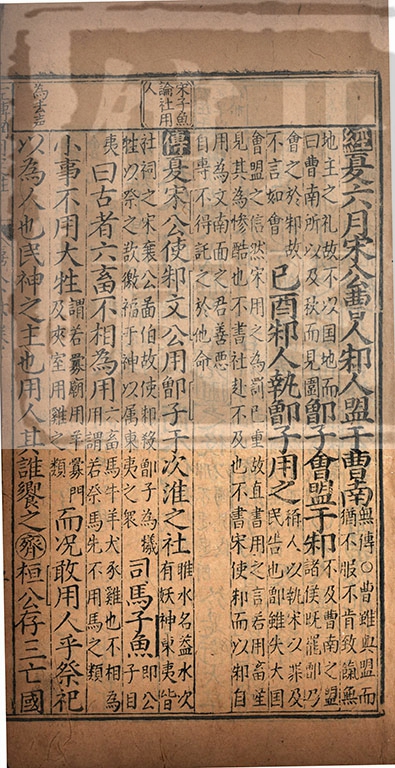 宋子魚
論社用
人
經夏六月宋公曹人邾人盟于曹南
無傳○曹雖與盟而
猶不服不肯致餼無
地主之禮故不以國地而
曰曹南所以及秋而見圍
鄫子會盟于邾
不及曹南之盟
諸侯既罷鄫乃
會之於邾故
不言如會
己酉邾人執鄫子用之
稱人以執宋以罪及
民告也鄫雖失大國
會盟之信然宋用之為罰已重故直書用之言若用畜產
見其為慘酷也不書社赴不及也不書宋使邾而以邾自
用為文南面之君善惡
自專不得託之於他命
傳夏宋公使邾文公用鄫子于次淮之社
睢水名益水次
有妖神東夷皆
社祠之宋襄公啚伯故使邾殺鄫子為犧
牲以祭之欲徼福于神以属東夷之衆
司馬子魚
即公
子目
夷曰古者六畜不相為用
六畜馬牛羊犬豕雞也不相為
用謂若祭馬先不用馬之類
小事不用大牲
謂若釁廟用羊釁門
及夾室用雞之類
而况敢用人乎祭祀
為去声
以為人也民神之主也用人其誰饗之齊桓公存三亡國